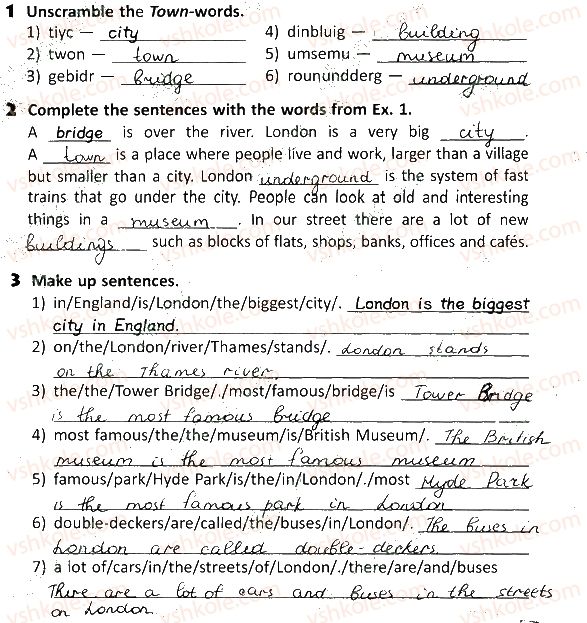 1 Unscramble the Town-words.
1) tiyc – city 4) dinbluig – building
2) twon – town 5) umsemu – museum
3) gebidr – bridge 6) rounundderg – underground
2 Complete the sentences with the words from Ex. 1.
A bridge is over the river. London is a very big city.
A town is a place where people live and work, larger than a village
but smaller than a city. London underground is the system of fast
trains that go under the city. People can look at old and interesting
things in a museum. In our street there are a lot of new
buildings such as blocks of flats, shops, banks, offices and cafés.
3 Make up sentences.
1) in/England/is/London/the/biggest/city/. London is the biggest
city in England.
2) on/the/London/river/Thames/stands/. London stands
on the Thames river.
3) the/the/Tower Bridge/./most/famous/bridge/is Tower Bridge
is the most famous bridge
4) most famous/the/the/museum/is/British Museum/. The British
museum is the most famous museum
5) famous/park/Hyde Park/is/the/in/London/./most Hyde Park
is the most famous park in London
6) double-deckers/are/called/the/buses/in/London/. The buses in
London are called double-deckers.
7) a lot of/cars/in/the/streets/of/London/./there/are/and/buses
There are a lot of cars and buses in the streets
on London.